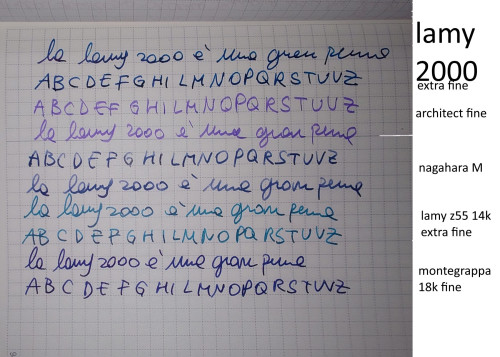 la lamy 2000 è una gran penna
ABCDEFGHILMNOPQRSTUVZ
ABCDEFGHILMNOPQRSTUVZ
la lamy 2000 è una gran penna
ABCDEFGHILMNOPQRSTUVZ
la lamy 2000 è una gran penna
la lamy 2000 è una gran penna
ABCDEFGHILMNOPQRSTUVZ
la lamy 2000 è una gran penna
ABCDEFGHILMNOPQRSTUVZ
lamy
2000
extra fine
architect fine
nagahara M
lamy z55 14k
extra fine
montegrappa
18k fine